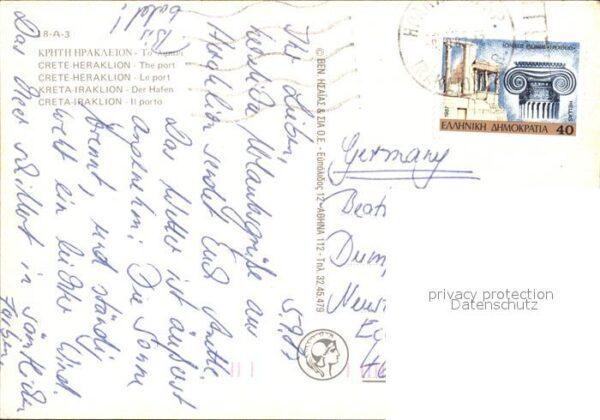 8-A-3
ΚΡΗΤΗ ΗΡΑΚΛΕΙΟΝ - Το λιμάνι
CRETE-HERAKLION - The port
CRETE-HERAKLION - Le port
KRETA-IRAKLION - Der Hafen
CRETA-IRAKLION - Il porto
5.9.88
Ihr Lieben,
herzliche Urlaubsgrüße au
Heraklion sendet Euch
Das Wetter ist äußerst
angenehm: Die Sonne
brennt, und ständig
weht ein leichter Wind.
Das Meer schillert in sämtlichen
Farben.
Bis
bald!
© ΒΕΝ. ΗΣΑΪΑΣ & ΣΙΑ Ο.Ε. - Ευπόλιδος 12 - ΑΘΗΝΑ 112 - Τηλ. 32.45.479
HELLAS
1987
ΕΛΛΗΝΙΚΗ ΔΗΜΟΚΡΑΤΙΑ 40
Germany
Beat
privacy protection
Datenschutz